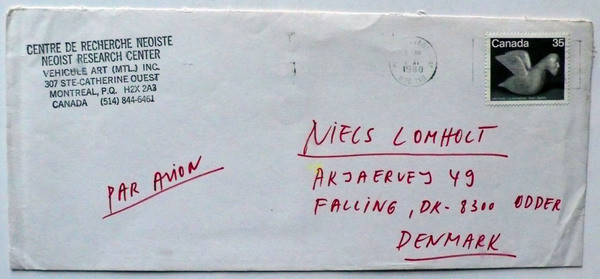 CENTRE DE RECHERCHE NEOISTE
NEOIST RESEARCH CENTER
VEHICULE ART (MTL.) INC.
307 STE-CATHERINE OUEST
MONTREAL, P.Q. H2X 2A3
CANADA (514) 844-6461
1980
Canada 35
PAR AVION
NIELS LOMHOLT
AKJAERVEJ 49
FALLING, DK-8300 ODDER
DENMARK